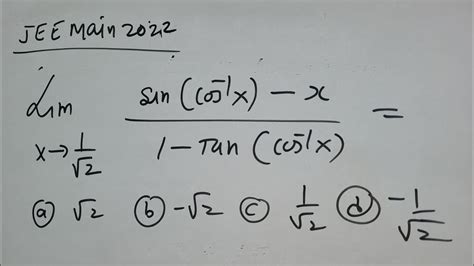 JEE Main 2022
Lim x→1/√2 (sin(cos⁻¹x) − x) / (1 − Tan(cos⁻¹x)) =
(a) √2 (b) -√2 (c) 1/√2 (d) -1/√2